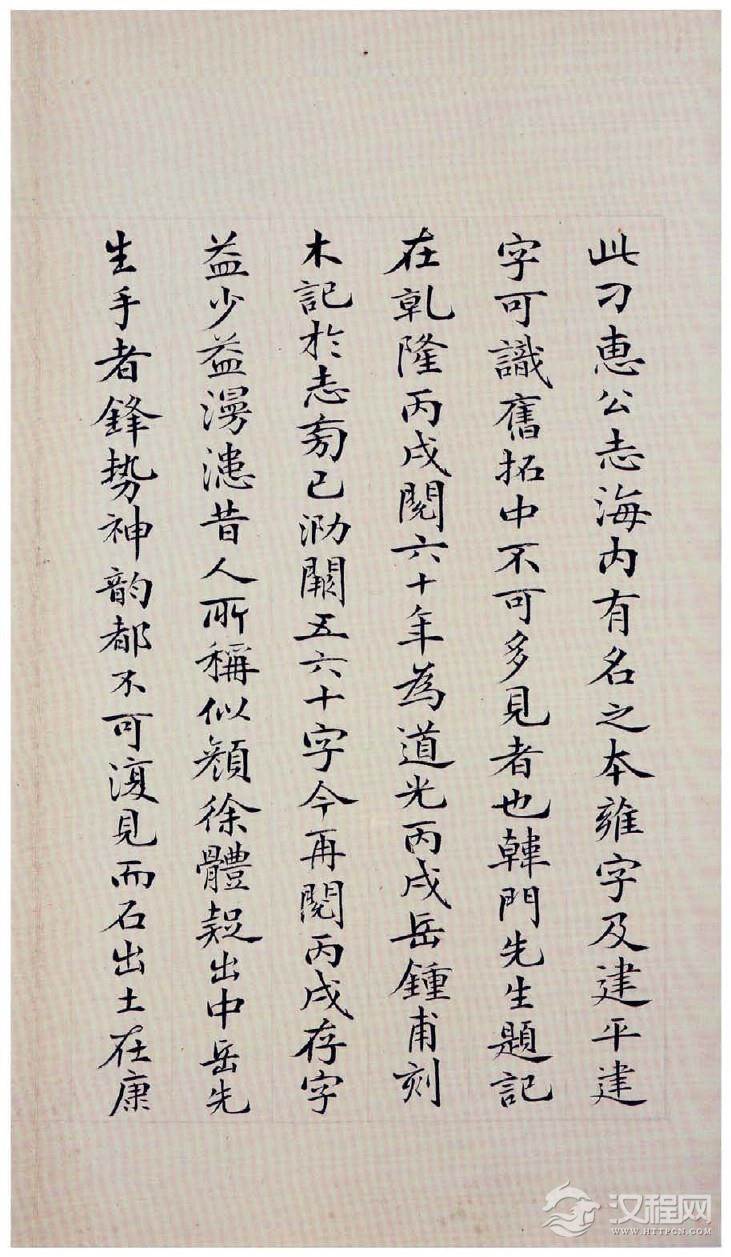 此刁惠公志海内有名之本雍字及建平建
字可識舊拓中不可多見者也韓門先生題記
在乹隆丙戌閱六十年為道光丙戌岳鍾甫刻
木記於志旁已泐闕五六十字今再閱丙戌存字
益少益漫漶昔人所稱似顏徐體疑出中岳先
生手者鋒勢神韵都不可復見而石出土在康
汉程网
WWW.HTTPCN.COM